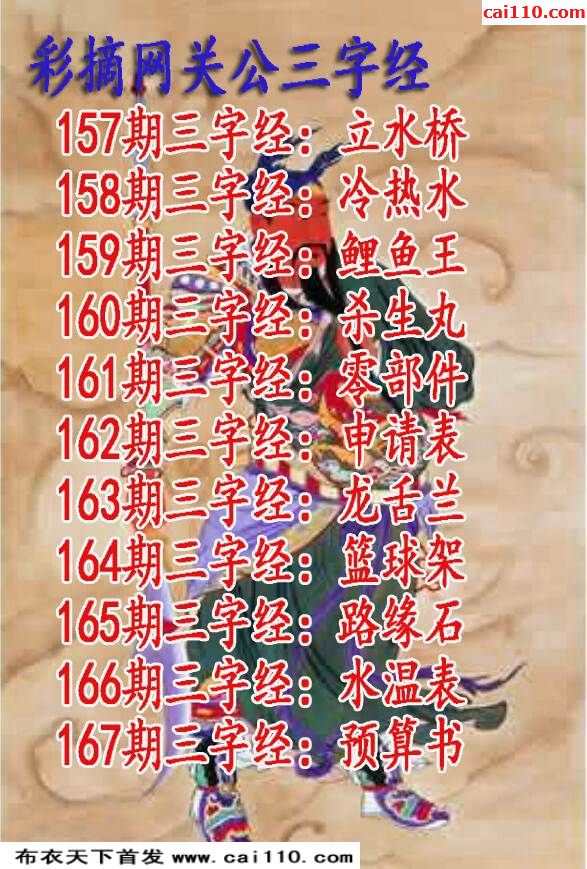 cai110.com
彩摘网关公三字经
157期三字经：立水桥
158期三字经：冷热水
159期三字经：鲤鱼王
160期三字经：杀生丸
161期三字经：零部件
162期三字经：申请表
163期三字经：龙舌兰
164期三字经：篮球架
165期三字经：路缘石
166期三字经：水温表
167期三字经：预算书
布衣天下首发 www.cai110.com